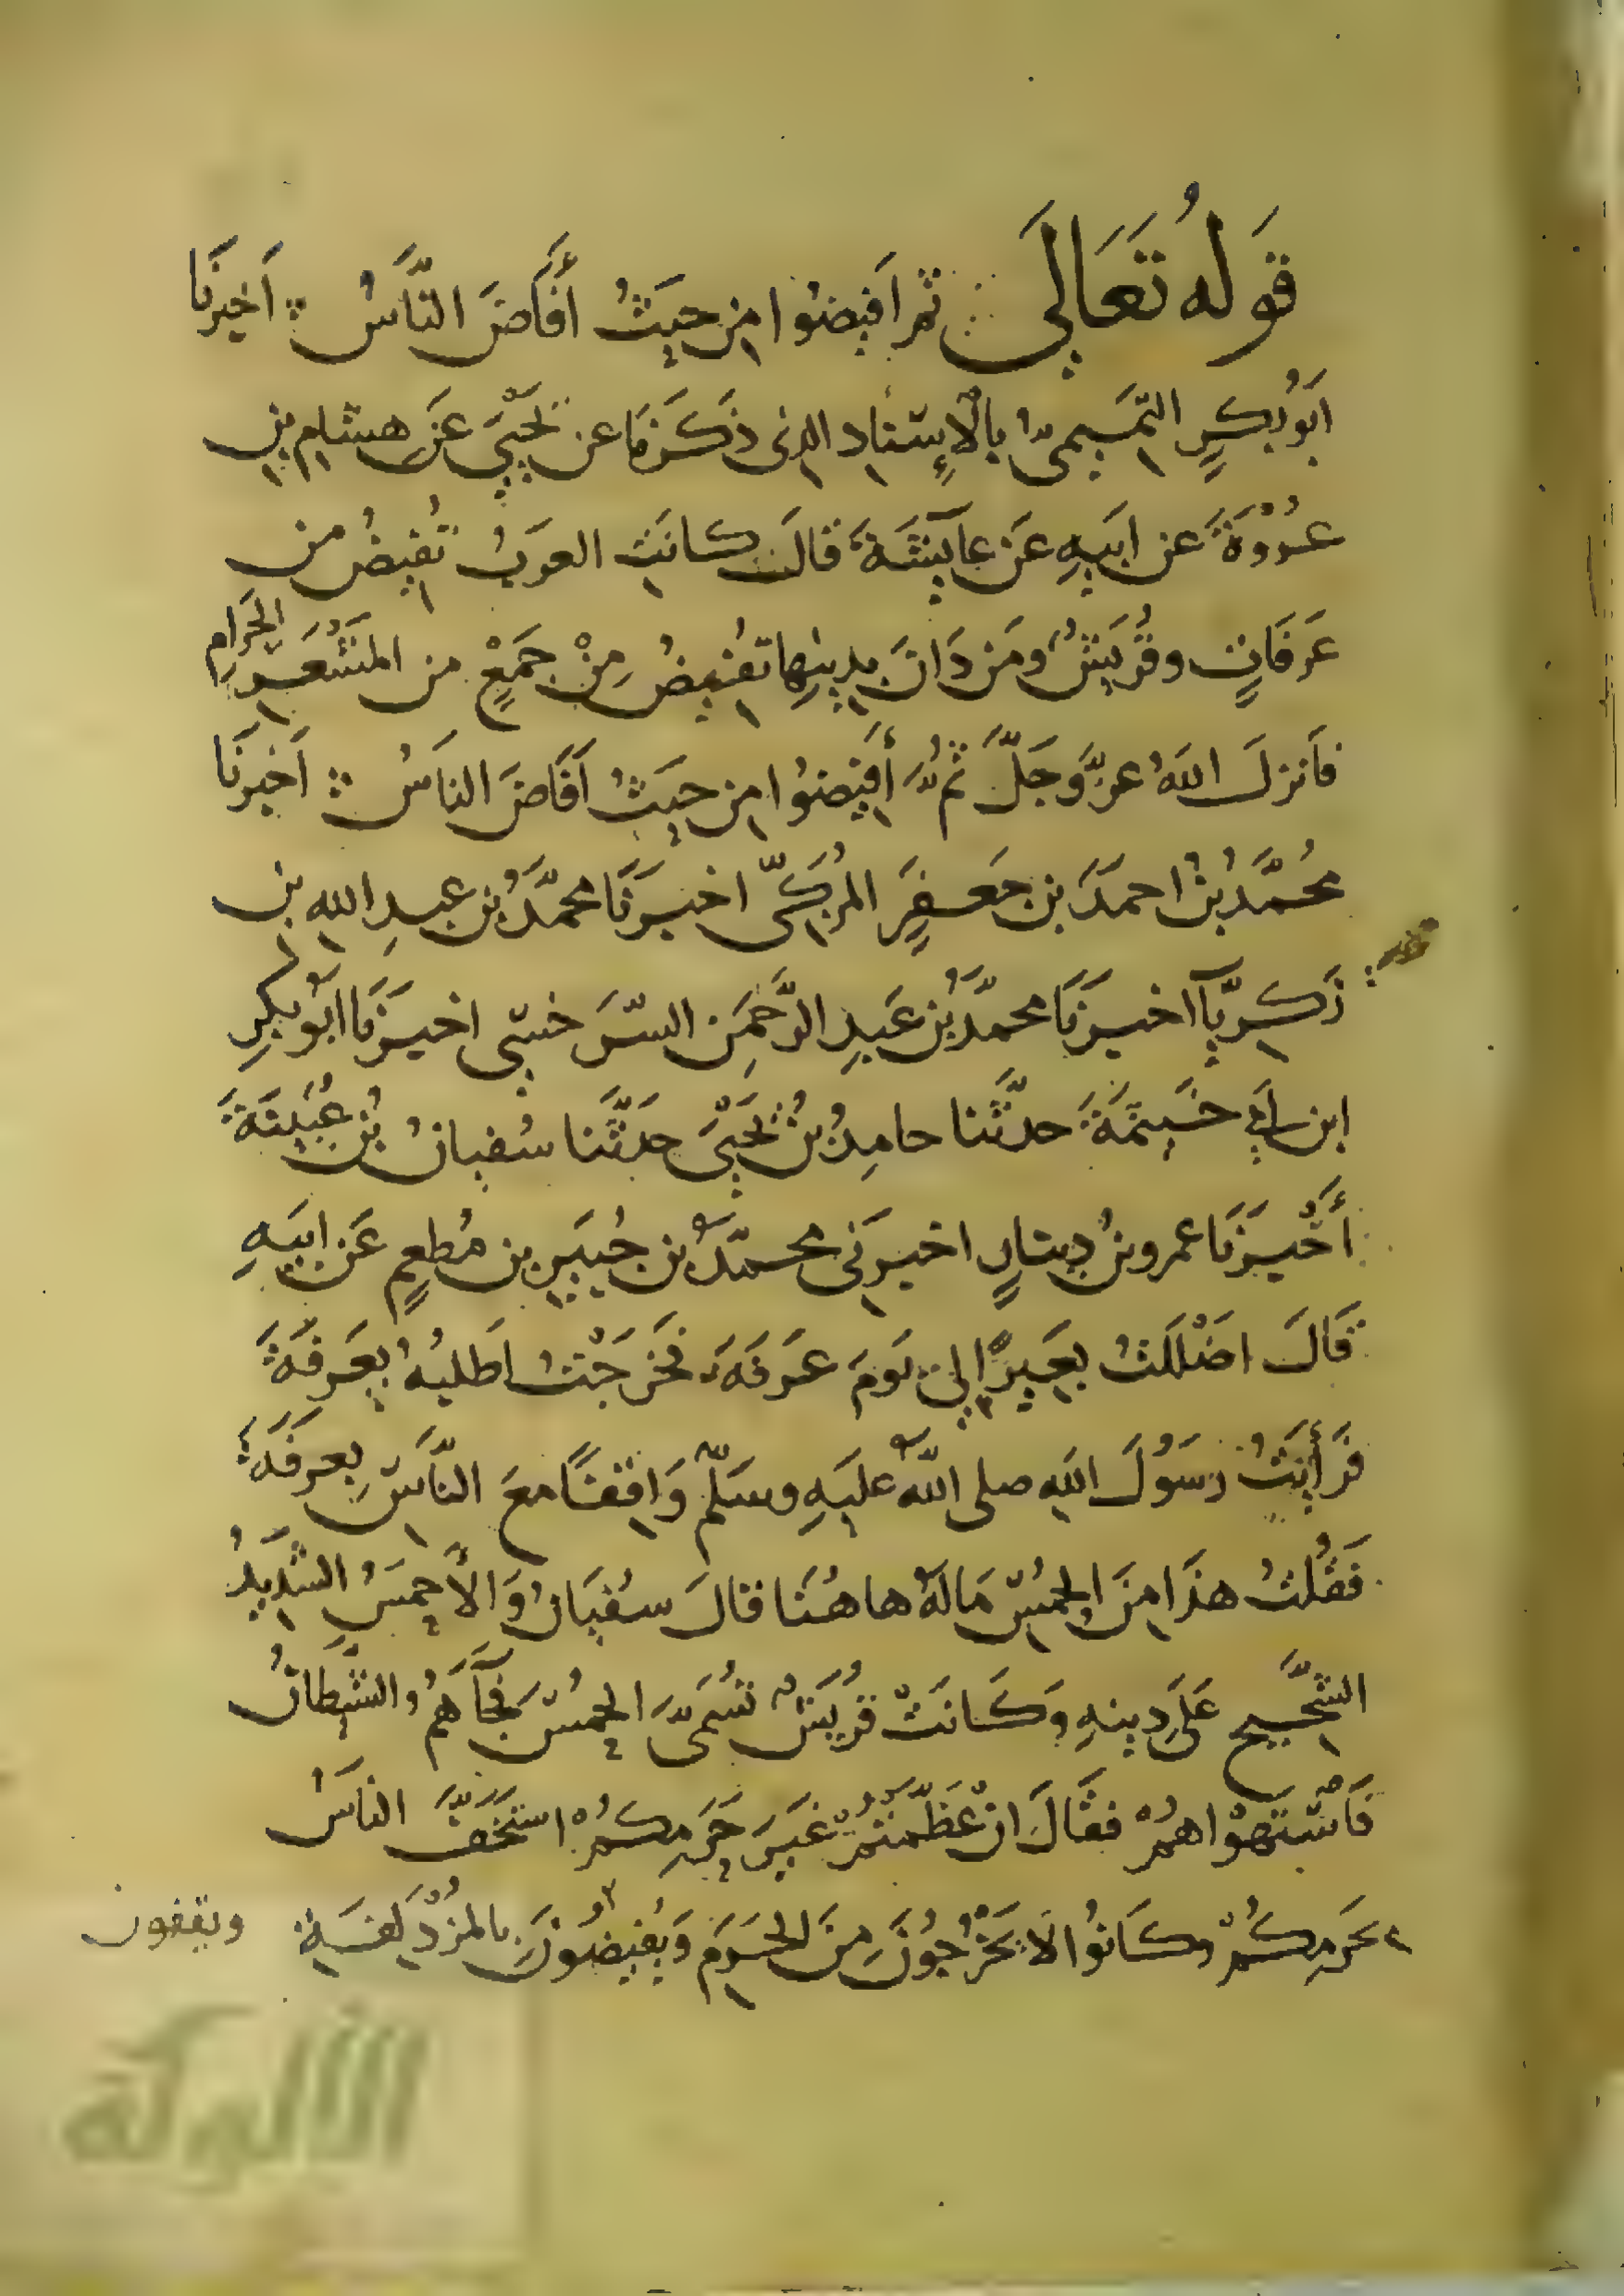 قَولهُ تَعَالَى ثم اَفيضُوا من حيَثُ أَفَاضَ النَّاسُ اَخبرَنا
ابَوُ بكرٍ التّمَيمىُّ بالْإِسنادِ الذى ذَكَرنَا عن يَحْيَى عَن هشام بن
عُرْوَةَ عن ابَيهِ عَن عآيشَةَ قالَت كانَت العَربُ تُفيضُ من
عَرفَاتٍ وقُرَيشٌ ومَن دَانَ بدِينِها تفُيضُ مِنْ جَمَعٍ من المَشْعَرِ الحَرَامِ
فاَنزلَ اللهُ عزَّوجَلَّ ثُمَّ أَفيَضوُا من حَيثُ اَفَاضَ الناسُ اَخبرَنَا
محُمَّدُ بنُ احمَدَ بن جَعفَرَ المزَكّى اخبرَنَا محمَّدُ بن عبدِ الله بن
زَكريّآ اخبرَنَا محمَّدُ بن عَبدِ الرَّحمَن السّرَخسى اخبَرَنا ابوُ بكرِ
ابن اَبى خَيثمَةَ حدثَّنا حامِدُ بنُ يَحيَى حَدثَّنا سُفيانُ بُن عُيَينَةَ
أَخْبَرَنَا عمرو بنُ دينارٍ اخبرَنى محمّدُ بن جُبَيرِ بن مُطعمٍ عَن ابَيهِ
قَالَ اضْلَلتُ بعَيرًا لى يَومَ عَرفَةَ فَخَرجَتُ اَطلبُهُ بِعَرفَةَ
فَرَأَيتُ رسَوُلَ اللَهِ صلى اللّهُ علَيهِ وسَلّم وَاقفًا معَ النَّاسِ بِعرَفَةَ
فَقُلتُ هذَا مِنَ الحُمْسِ مَالهُ هاهُنَا قالَ سُفيَانُ وَالأَحمسُ الشَّديدُ
الشَّحيحُ عَلَى دِينهِ وَكَانَتْ قُريَشٌ تُسَمىَّ الحُمْسَ فَجآءَهُم الشَّيطَانُ
فَاستَهوْاهُمْ فقَالَ انْ عَظّمتُمْ غَيرَ حَرَمِكُمْ استَخَفَّ الناسُ
بحَرمِكُمْ وكَانُوا لَا يَخْرُجوُنَ مِنَ الحَرَمِ وَيُفيضُونَ بالمزُدْلَفَةِ
ويقفون
الألوكة